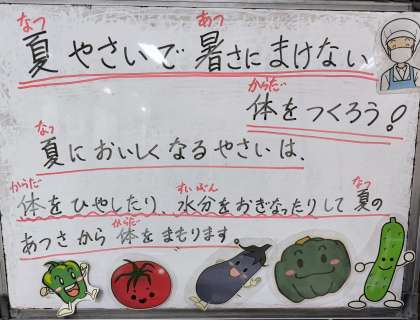 なつ あつ
夏やさいで暑さにまけない
からだ
体をつくろう!
なつ
夏においしくなるやさいは、
からだ すいぶん なつ
体をひやしたり、水分をおぎなったりして夏の
からだ
あつさから体をまもります